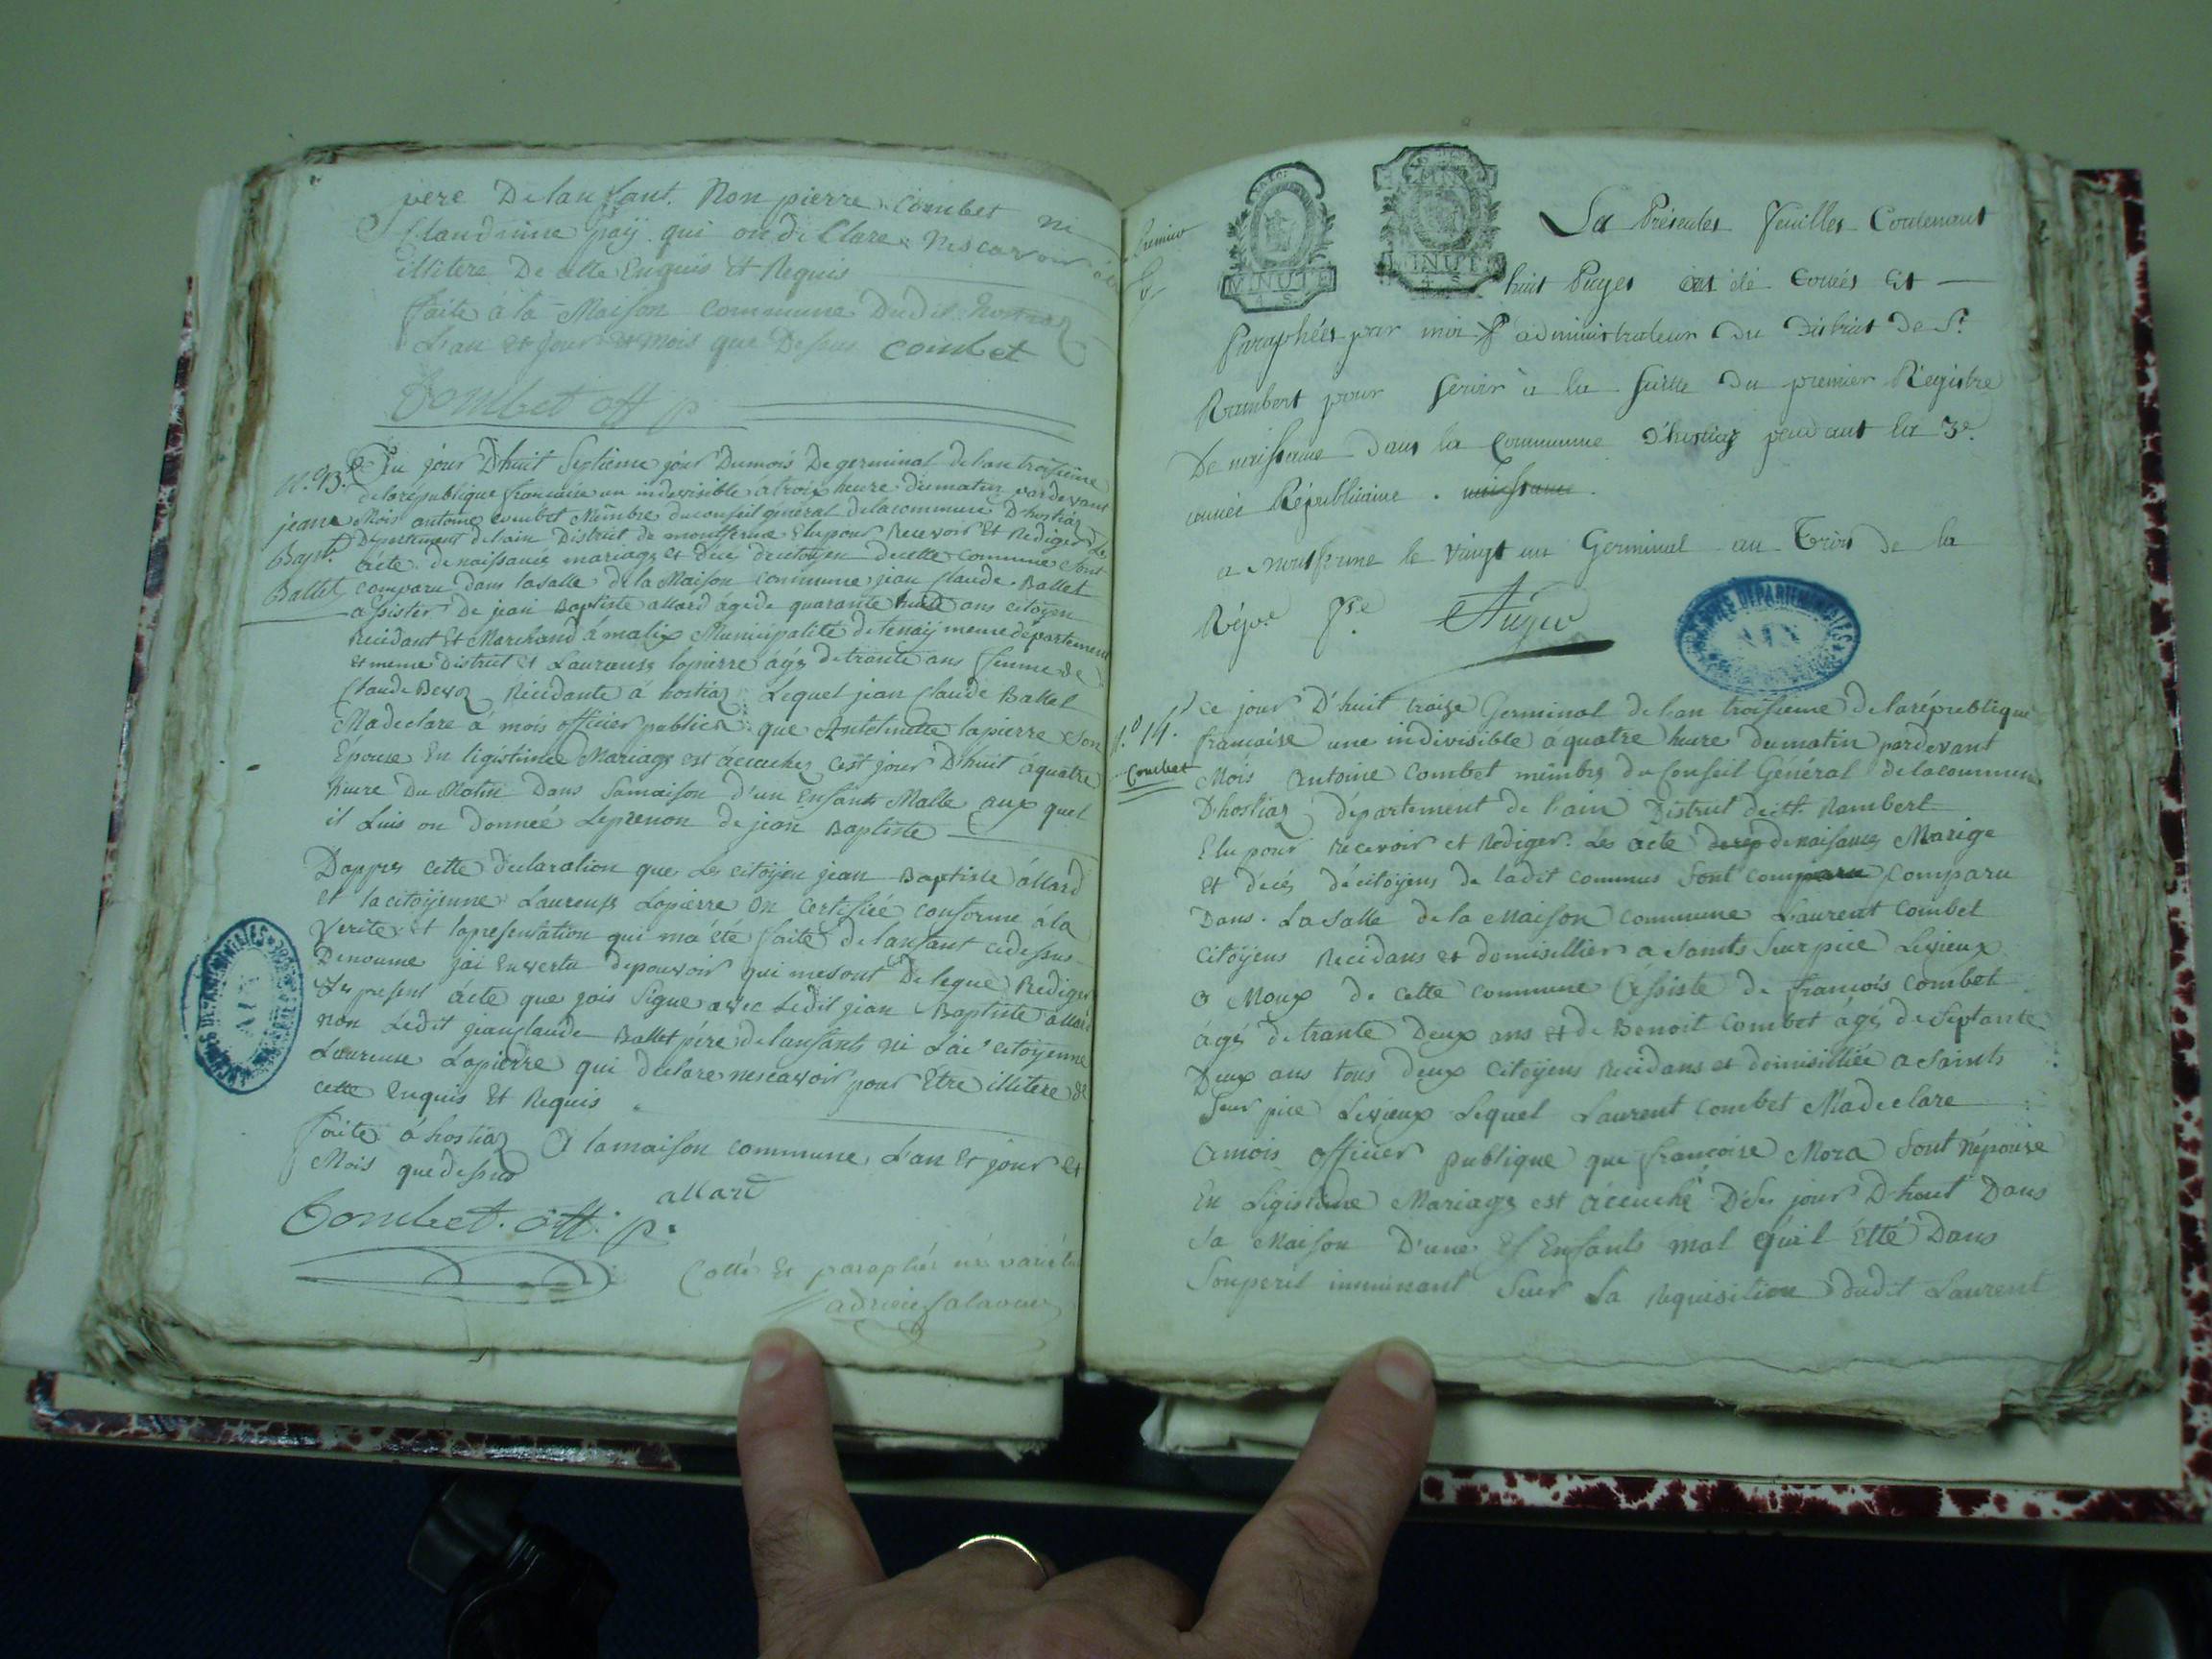 père De lanfant. Non pierre Combet ni
Claudinne paÿ qui on diClare Nescavoir
illitere De cette Enquis Et Requis
faite à la Maison Commune Dudit hostiaz
L'an et jour et mois que Dessus Combet
Combet off p
n.º 13.
jean
Bapt.
Ballet
Du jour D'huit Septieme jour Dumois De germinal de lan troisieme
de la république francaise un indevisible à troix heure dumatin par devant
Mois antoine Combet Membre du conseil général delacommune D'hostiaz
Département delain District de montferme Elu pour Recevoir Et Rediger Les
acte de naissance mariage et Déce decitoyen decette commune Sont
comparu dans lasalle de la Maison commune jean Claude Ballet
assister De jean Baptiste allard âgé de quarante huit ans citoyen
Recidant Et Marchand à malix Municipalite de tenaÿ meme département
et meme District et Laureuse lapierre âgé de trante ans femme de
Claude Recidante à hostiaz Lequel jean Claude Ballet
Ma declare a mois officier public que Antetinette lapierre Son
Epouse En ligistimee Mariage est accuchez cest jour D'huit à quatre
heure Du Matin Dans Samaison d'un Enfant Malle aux quel
il Luis on Donneé Leprenon de jean Baptiste
D'appres cette Declaration que Le citoyen jean Baptiste allard
Et la citoÿenne Laureuse Lapierre on Certifiée conforme à la
Verite et lapresentation qui ma été faite de lanfant cidessus
Denoume jai Envertu depouvoir qui mesont Delegue Rediger
Le present Acte que jais Signe avec Ledit jean Baptiste allard
non Ledit jeanclaude Ballet père delansfants ni citoyenne
Laureuse Lapierre qui declare nescavoir pour Etre illitere de
cette enquis Et Requis
faite à hostiaz à la maison commune L'an Et jour Et
Mois que dessus
allard
Combet. off. p.
Cotté Et paraphés né varietur
Premier
La Présentes feuilles Contenant
huit Pages ont été Cottés Et
Paraphées par moi administrateur Du District De St
Rambert pour Servir à la Suitte Du premier Registre
De naissance Dans la Commune D'hostiaz pendant la 3e.
année Républicaine . naissance .
a Montferme le vingt un Germinal an Trois de la
Répve. fse
MINUTE
MINUTE
ARCHIVES DÉPARTEMENTALES
AIN
n.º 14.
Combet
Ce jour D'huit traize Germinal de l'an troisieme de la république
francaise une indivisible à quatre heure dumatin pardevant
Mois Antoine Combet membre du Conseil Général delacommune
D'hostiaz département de l'ain District de St. Rambert
Elu pour recevoir et Rediger Les acte de naisance Marige
Et décés décitoÿens de ladit commus Sont comparu Comparu
Dans La Salle de la Maison commune Laurent Combet
Citoÿens Recidans et demisillier a Saints Seurpice Levieux
o Moux de cette commune Assiste de francois combet
âgé de trante Deux ans et de Benoit Combet âgé de Septante
Deux ans tous deux Citoÿens Recidans et demisiliée a Saints
Seur pice Levieux Lequel Laurent Combet M'adeclare
Amois Officier publique que francoise Mora Sont Népouse
En Ligistime Mariage est accuché Dés jour D'huit Dans
Sa Maison D'une Enfants mal quil Etté Dans
Souperil imminant Seur La Requisition dudit Laurent
ARCHIVES DÉPARTEMENTALES
AIN